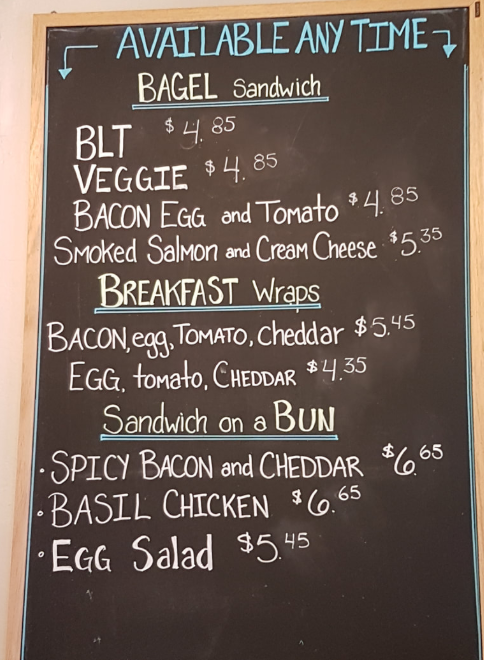 AVAILABLE ANY TIME
BAGEL Sandwich
BLT $4.85
VEGGIE $4.85
BACON EGG and TOMATO $4.85
SMOKED SALMON and CREAM CHEESE $5.35
BREAKFAST Wraps
BACON, egg, TOMATO, Cheddar $5.45
EGG, tomato, CHEDDAR $4.35
Sandwich on a BUN
• SPICY BACON and CHEDDAR $6.65
• BASIL CHICKEN $6.65
• EGG Salad $5.45